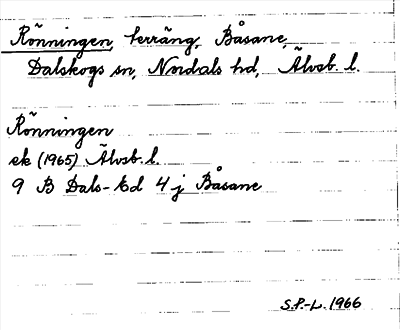 Rönningen, terräng, Båsane,
Dalskogs sn, Nordals hd, Älvsb. l.
Rönningen
ek (1965) Älvsb. l.
9 B Dals-Ed 4 j Båsane
S.P.-L. 1966